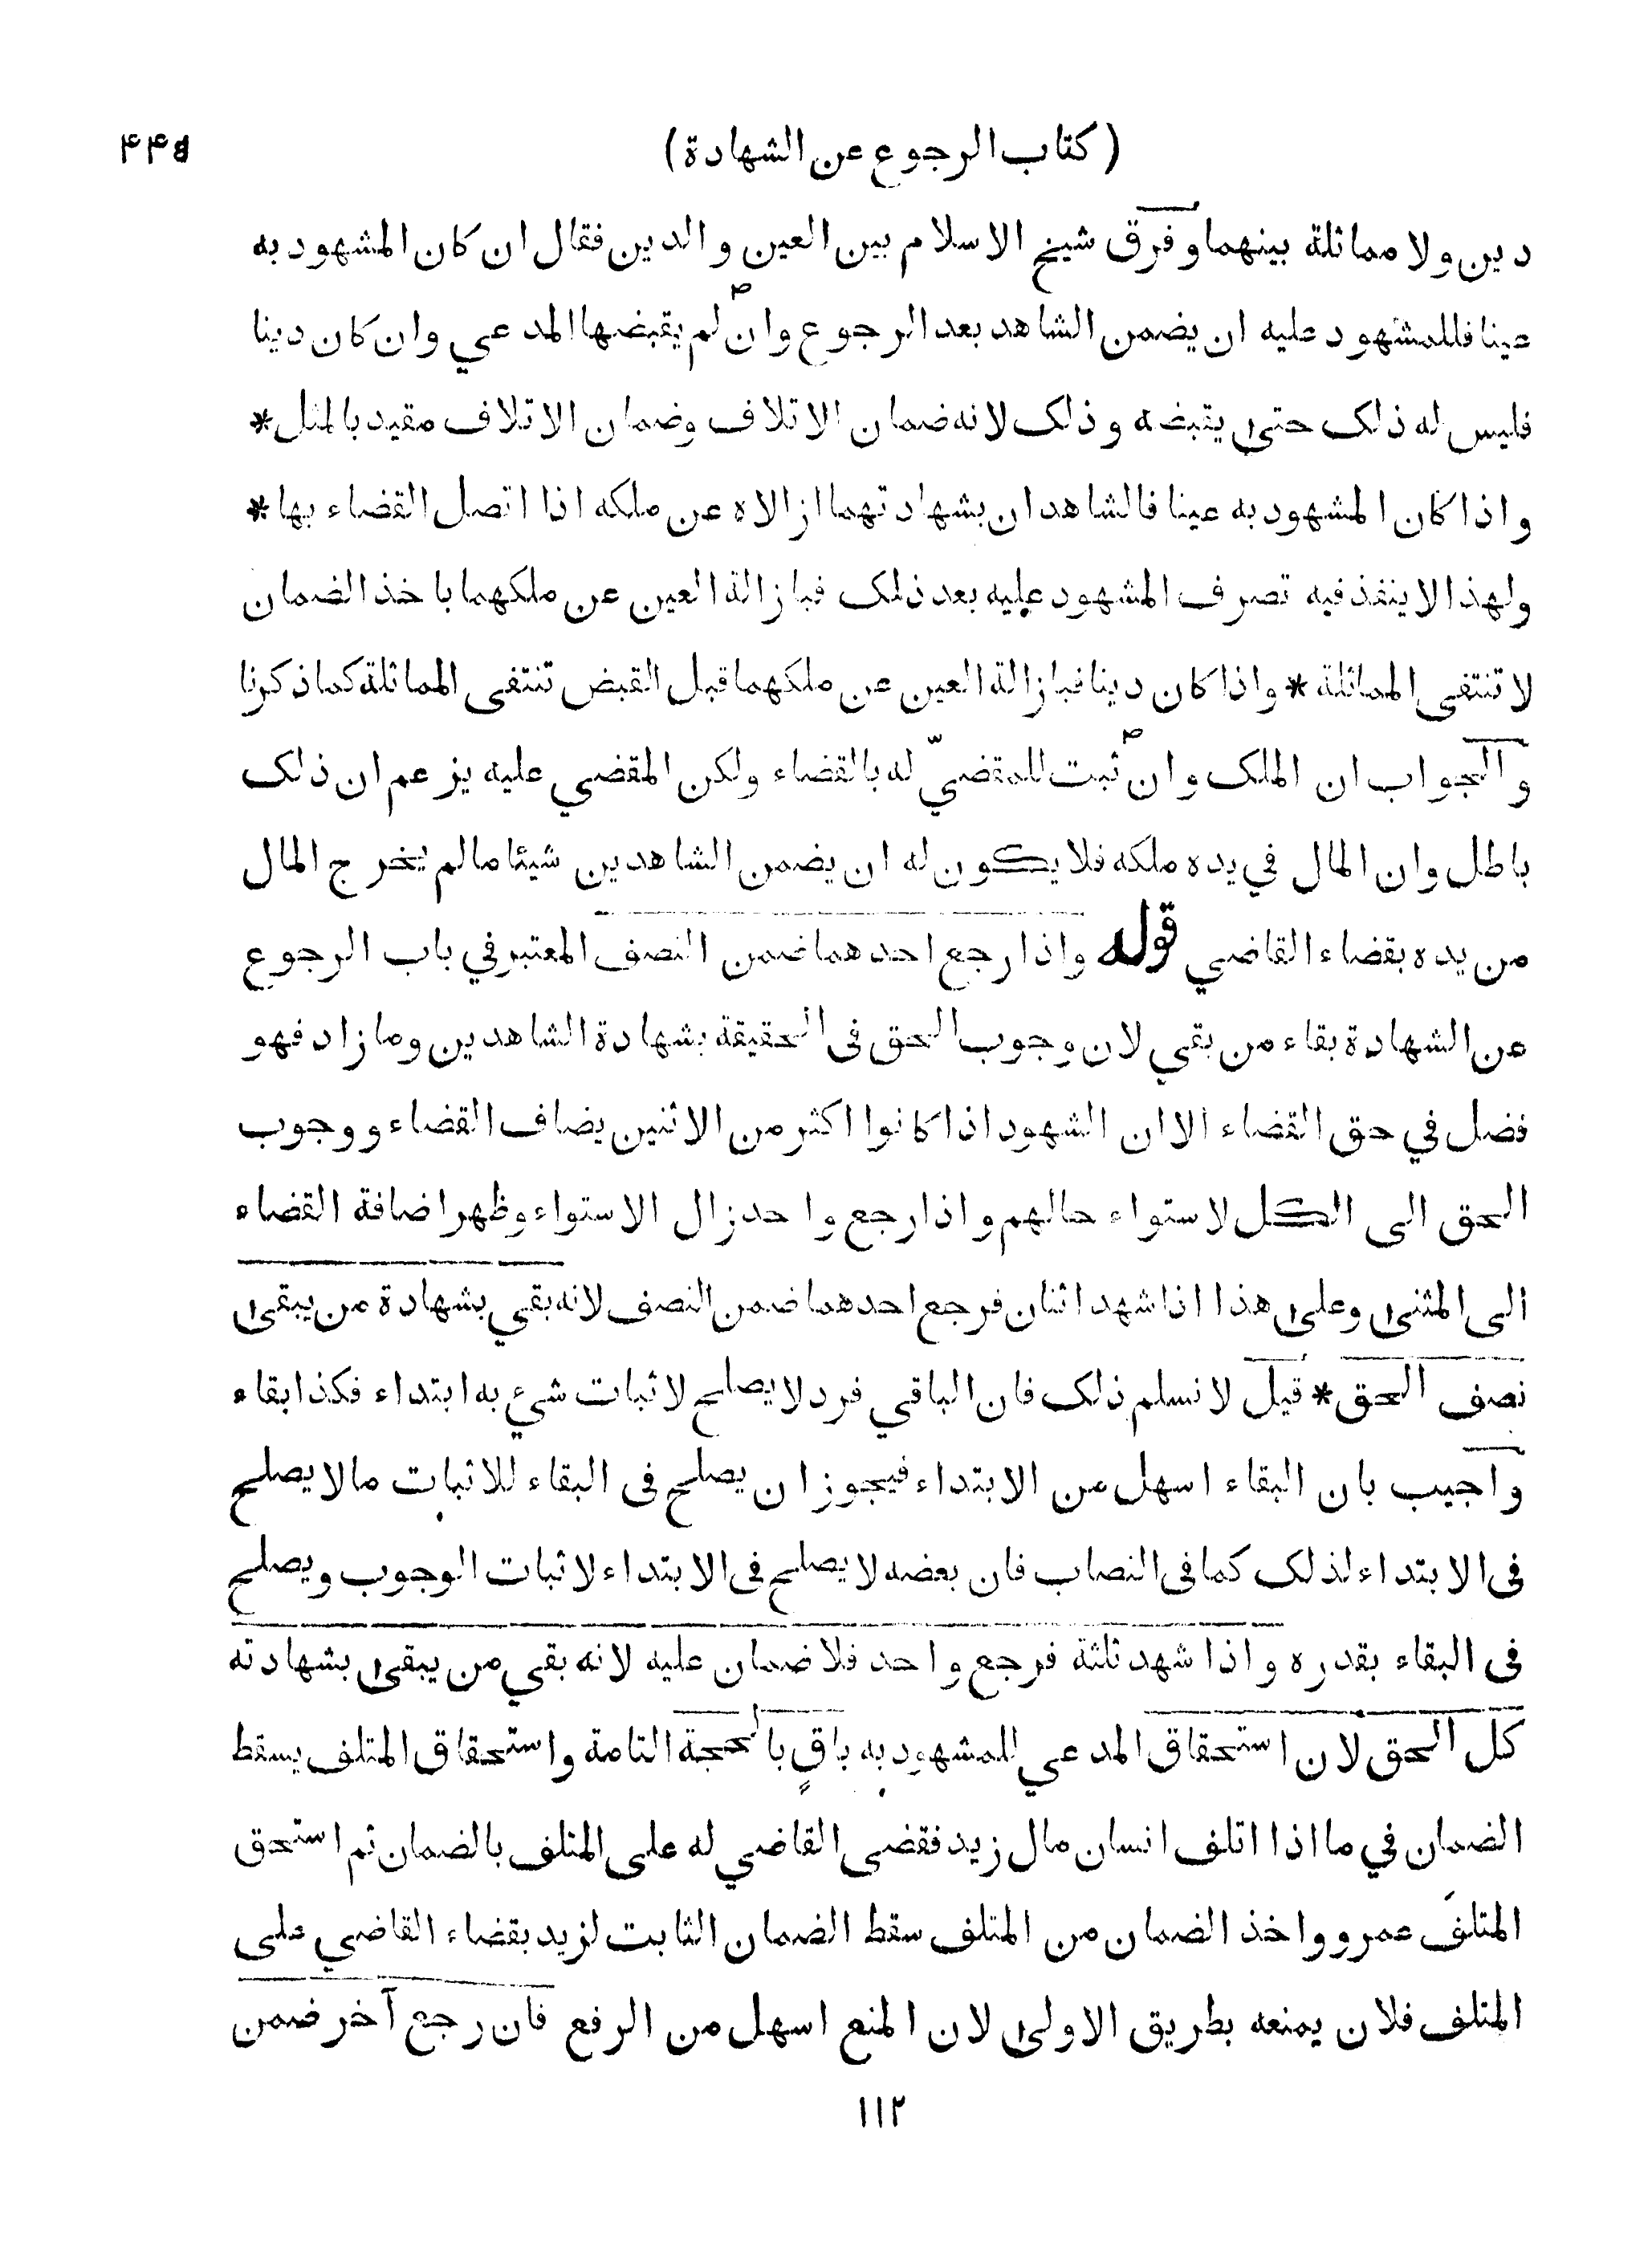 (كتاب الرجوع عن الشهادة) ۴۴۵
دين ولا مماثلة بينهما وفرق شيخ الاسلام بين العين والدين فقال ان كان المشهود به
عينا فللمشهود عليه ان يضمن الشاهد بعد الرجوع وان لم يقبضها المدعي وان كان دينا
فليس له ذلك حتى يقبضه وذلك لانه ضمان الاتلاف وضمان الاتلاف مقيد بالمثل *
واذا كان المشهود به عينا فالشاهدان بشهادتهما ازالاه عن ملكه اذا اتصل القضاء بها *
ولهذا لا ينفذ فيه تصرف المشهود عليه بعد ذلك فبازالة العين عن ملكهما باخذ الضمان
لا تنتفي المماثلة * واذا كان دينا فبازالة العين عن ملكهما قبل القبض تنتفى المماثلة كما ذكرنا
والجواب ان الملك وان ثبت للمقضيّ له بالقضاء ولكن المقضي عليه يزعم ان ذلك
باطل وان المال في يده ملكه فلا يكون له ان يضمن الشاهدين شيئا مالم يخرج المال
من يده بقضاء القاضي قوله واذا رجع احدهما ضمن النصف المعتبر في باب الرجوع
عن الشهادة بقاء من بقي لان وجوب الحق فى الحقيقة بشهادة الشاهدين وما زاد فهو
فضل في حق القضاء الا ان الشهود اذا كانوا اكثر من الاثنين يضاف القضاء ووجوب
الحق الى الكل لاستواء حالهم واذا رجع واحد زال الاستواء وظهر اضافة القضاء
الى المثنى وعلى هذا اذا شهد اثنان فرجع احدهما ضمن النصف لانه بقي بشهادة من يبقى
نصف الحق * قيل لا نسلم ذلك فان الباقي فرد لا يصلح لاثبات شيء به ابتداء فكذا بقاء
واجيب بان البقاء اسهل من الابتداء فيجوز ان يصلح فى البقاء للاثبات مالا يصلح
فى الابتداء لذلك كما فى النصاب فان بعضه لا يصلح فى الابتداء لاثبات الوجوب ويصلح
فى البقاء بقدره واذا شهد ثلثة فرجع واحد فلا ضمان عليه لانه بقي من يبقى بشهادته
كل الحق لان استحقاق المدعي للمشهود به باقٍ بالحجة التامة واستحقاق المتلف يسقط
الضمان في ما اذا اتلف انسان مال زيد فقضى القاضي له على المتلف بالضمان ثم استحق
المتلفَ عمرو واخذ الضمان من المتلف سقط الضمان الثابت لزيد بقضاء القاضي على
المتلف فلان يمنعه بطريق الاولى لان المنع اسهل من الرفع فان رجع آخر ضمن
۱۱۲